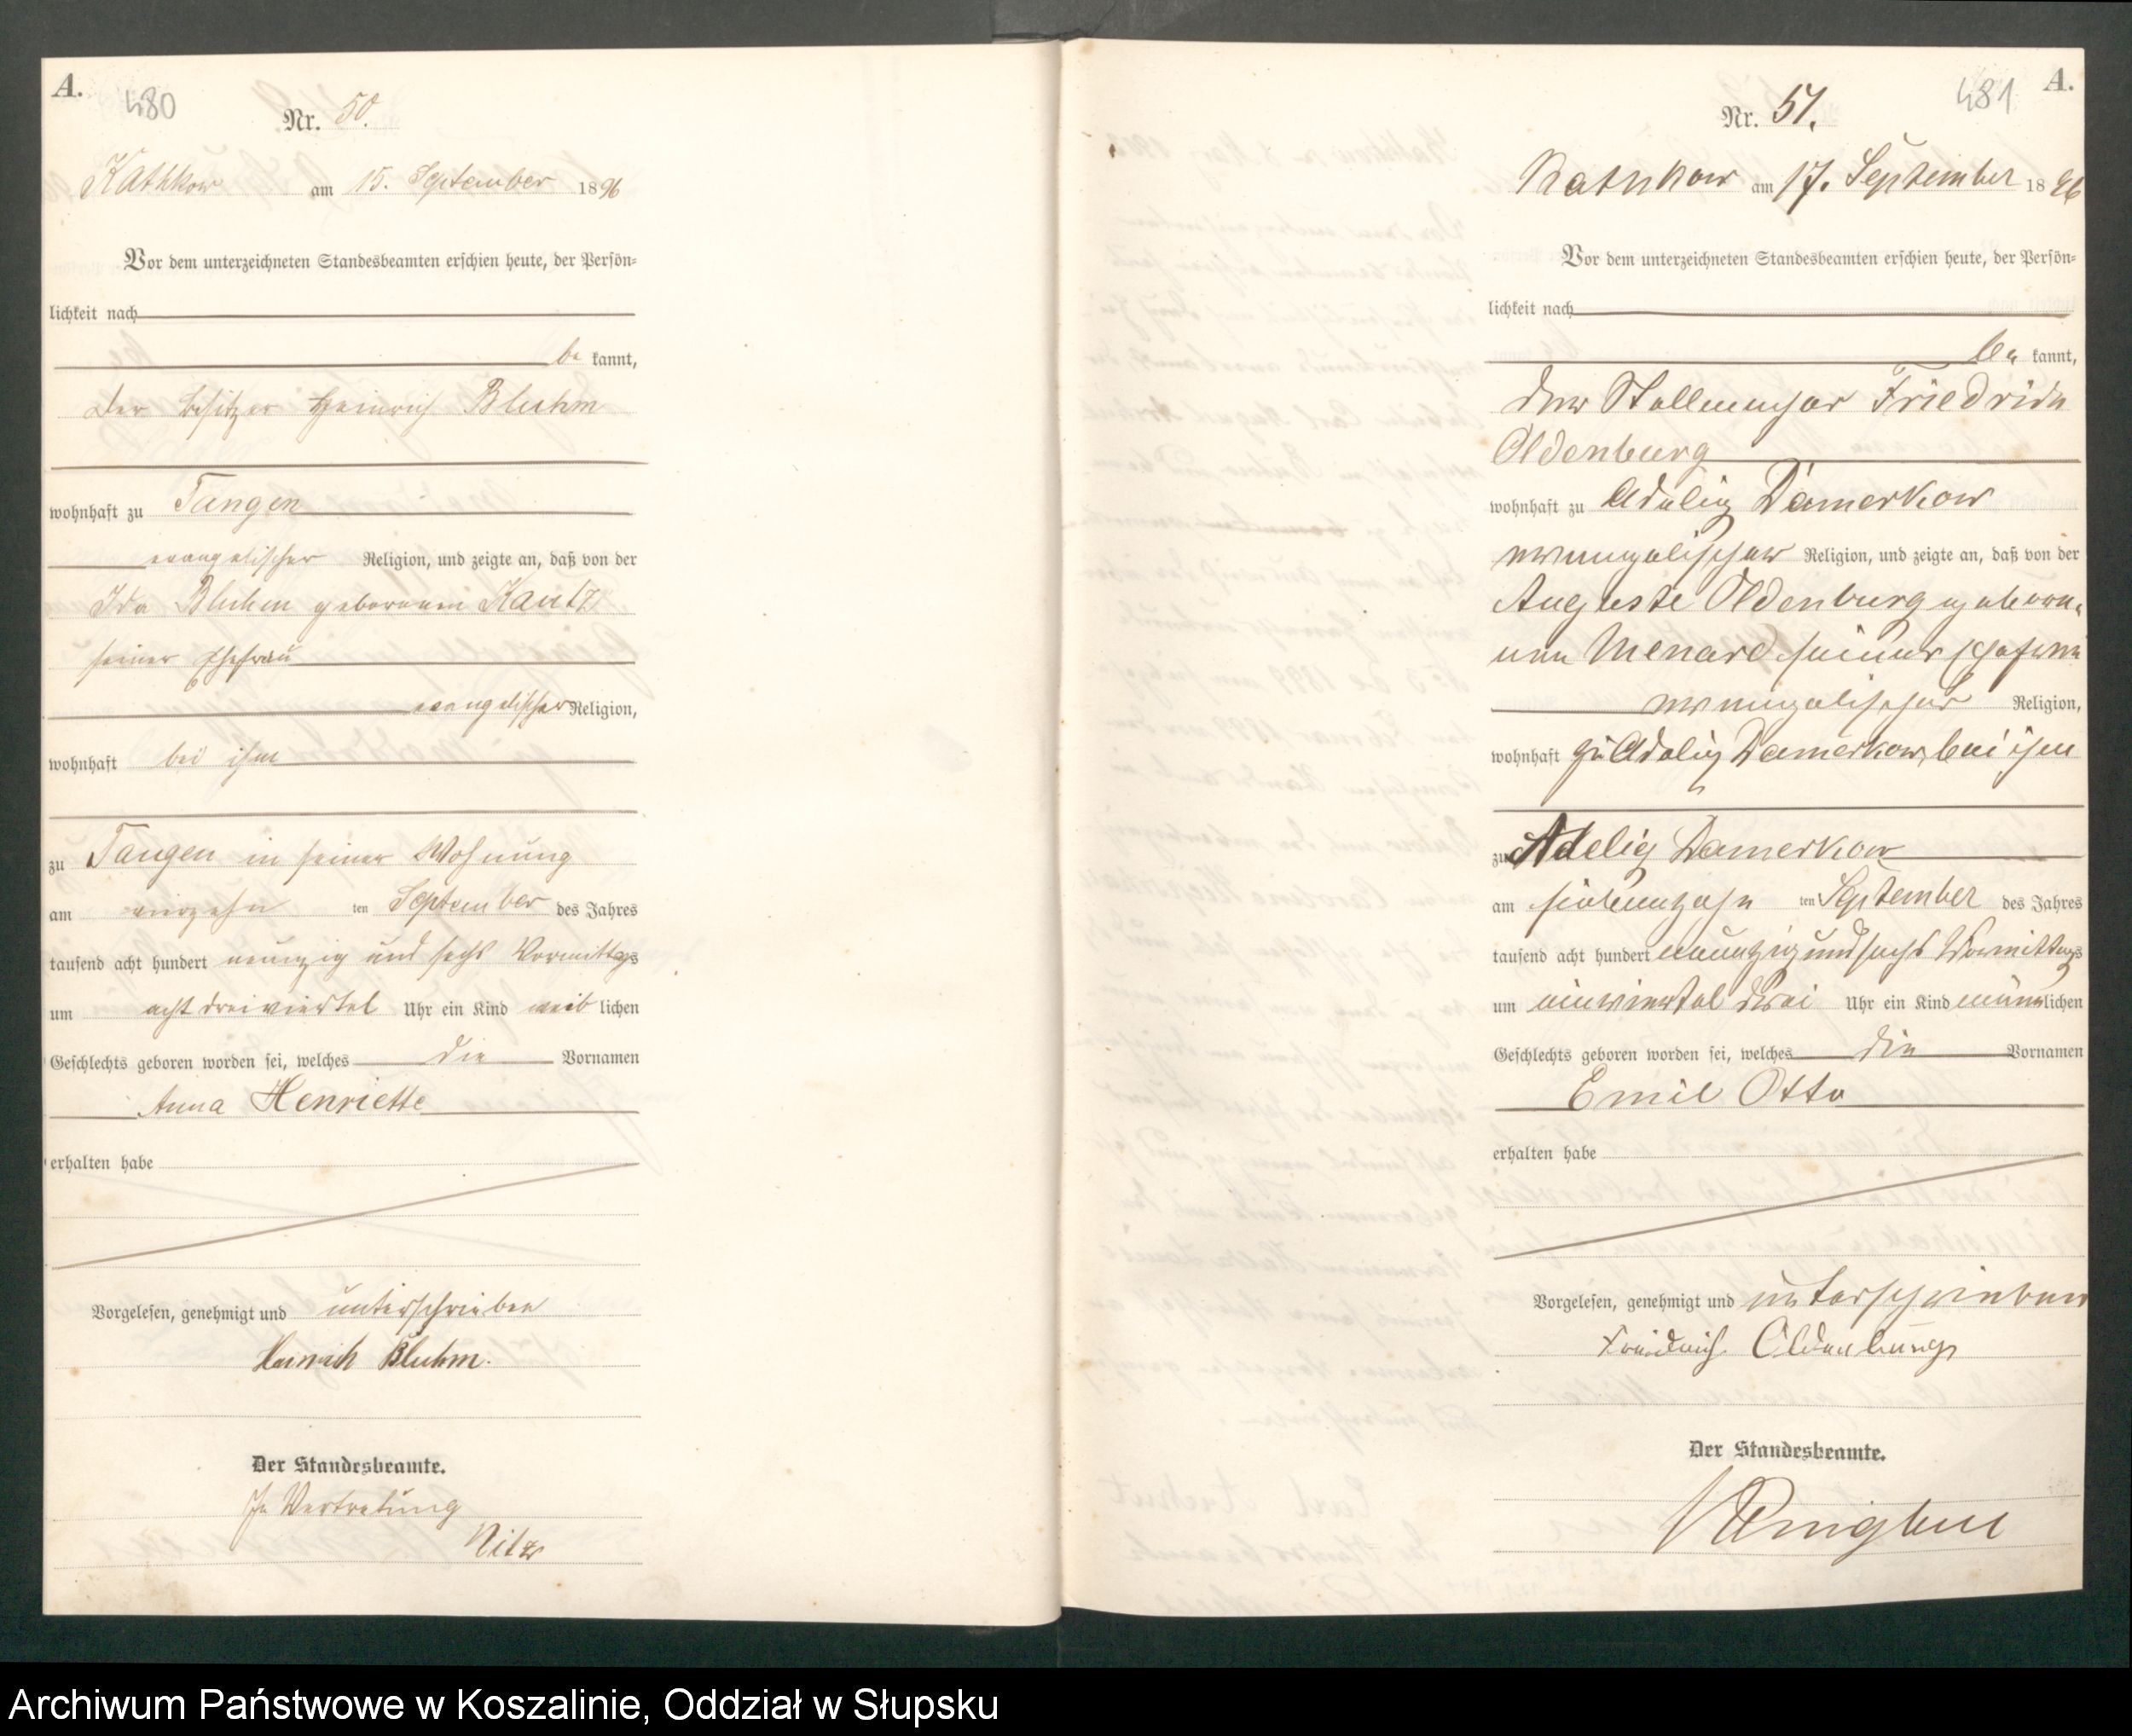 A.
480
Nr. 50.
Kathkow am 15. September 1896
Vor dem unterzeichneten Standesbeamten erschien heute, der Persön-
lichkeit nach
be kannt,
der Besitzer Heinrich Bluhm
wohnhaft zu Tangen
evangelischer Religion, und zeigte an, daß von der
Ida Bluhm geborenen Kautz
seiner Ehefrau
evangelischer Religion,
wohnhaft bei ihm
zu Tangen in seiner Wohnung
am vierzehn ten September des Jahres
tausend acht hundert neunzig und sechs Vormittags
um acht dreiviertel Uhr ein Kind weib lichen
Geschlechts geboren worden sei, welches die Vornamen
Anna Henriette
erhalten habe
Vorgelesen, genehmigt und unterschrieben
Heinrich Bluhm.
Der Standesbeamte.
In Vertretung
A.
481
Nr. 51.
Kathkow am 17. September 1896
Vor dem unterzeichneten Standesbeamten erschien heute, der Persön-
lichkeit nach
be kannt,
der Friedrich
Oldenburg
wohnhaft zu Adelig Damerkow
evangelischer Religion, und zeigte an, daß von der
Auguste Oldenburg gebore-
nen Menard seiner Ehefrau
evangelischer Religion,
wohnhaft zu Adelig Damerkow, bei ihm
zu Adelig Damerkow
am siebenzehn ten September des Jahres
tausend acht hundert neunzig und sechs Vormittags
um einviertel drei Uhr ein Kind männlichen
Geschlechts geboren worden sei, welches die Vornamen
Emil Otto
erhalten habe
Vorgelesen, genehmigt und unterschrieben
Friedrich Oldenburg
Der Standesbeamte.
Archiwum Państwowe w Koszalinie, Oddział w Słupsku